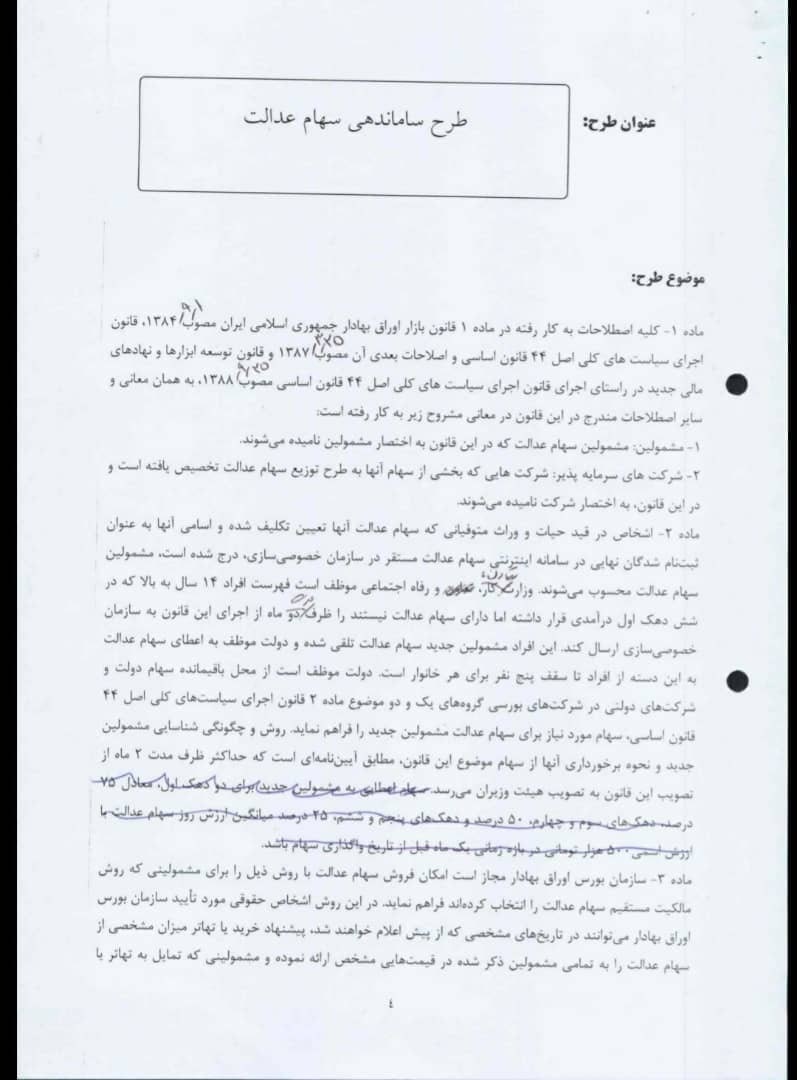 عنوان طرح:
طرح ساماندهی سهام عدالت
موضوع طرح:
ماده ۱- کلیه اصطلاحات به کار رفته در ماده ۱ قانون بازار اوراق بهادار جمهوری اسلامی ایران مصوب ۱۳۸۴/۹/۱، قانون
اجرای سیاست های کلی اصل ۴۴ قانون اساسی و اصلاحات بعدی آن مصوب ۱۳۸۷ و قانون توسعه ابزارها و نهادهای
مالی جدید در راستای اجرای قانون اجرای سیاست های کلی اصل ۴۴ قانون اساسی مصوب ۱۳۸۸، به همان معانی و
سایر اصطلاحات مندرج در این قانون در معانی مشروح زیر به کار رفته است:
۱- مشمولین: مشمولین سهام عدالت که در این قانون به اختصار مشمولین نامیده می‌شوند.
۲- شرکت های سرمایه پذیر: شرکت هایی که بخشی از سهام آنها به طرح توزیع سهام عدالت تخصیص یافته است و
در این قانون، به اختصار شرکت نامیده می‌شوند.
ماده ۲- اشخاص در قید حیات و وراث متوفیانی که سهام عدالت آنها تعیین تکلیف شده و اسامی آنها به عنوان
ثبت‌نام شدگان نهایی در سامانه اینترنتی سهام عدالت مستقر در سازمان خصوصی‌سازی، درج شده است، مشمولین
سهام عدالت محسوب می‌شوند. وزارت کار، تعاون و رفاه اجتماعی موظف است فهرست افراد ۱۴ سال به بالا که در
شش دهک اول درآمدی قرار داشته اما دارای سهام عدالت نیستند را ظرف دو ماه از اجرای این قانون به سازمان
خصوصی‌سازی ارسال کند. این افراد مشمولین جدید سهام عدالت تلقی شده و دولت موظف به اعطای سهام عدالت
به این دسته از افراد تا سقف پنج نفر برای هر خانوار است. دولت موظف است از محل باقیمانده سهام دولت و
شرکت‌های دولتی در شرکت‌های بورسی گروه‌های یک و دو موضوع ماده ۲ قانون اجرای سیاست‌های کلی اصل ۴۴
قانون اساسی، سهام مورد نیاز برای سهام عدالت مشمولین جدید را فراهم نماید. روش و چگونگی شناسایی مشمولین
جدید و نحوه برخورداری آنها از سهام موضوع این قانون، مطابق آیین‌نامه‌ای است که حداکثر ظرف مدت ۲ ماه از
تصویب این قانون به تصویب هیئت وزیران می‌رسد. سهام اعطایی به مشمولین جدید برای دو دهک اول، معادل ۷۵
درصد، دهک‌های سوم و چهارم، ۵۰ درصد و دهک‌های پنجم و ششم، ۲۵ درصد میانگین ارزش روز سهام عدالت با
ارزش اسمی ۵۰۰ هزار تومانی در بازه زمانی یک ماه قبل از تاریخ واگذاری سهام باشد.
ماده ۳- سازمان بورس اوراق بهادار مجاز است امکان فروش سهام عدالت با روش ذیل را برای مشمولینی که روش
مالکیت مستقیم سهام عدالت را انتخاب کرده‌اند فراهم نماید. در این روش اشخاص حقوقی مورد تأیید سازمان بورس
اوراق بهادار می‌توانند در تاریخ‌های مشخصی که از پیش اعلام خواهند شد، پیشنهاد خرید یا تهاتر میزان مشخصی از
سهام عدالت را به تمامی مشمولین ذکر شده در قیمت‌هایی مشخص ارائه نموده و مشمولینی که تمایل به تهاتر یا
٤